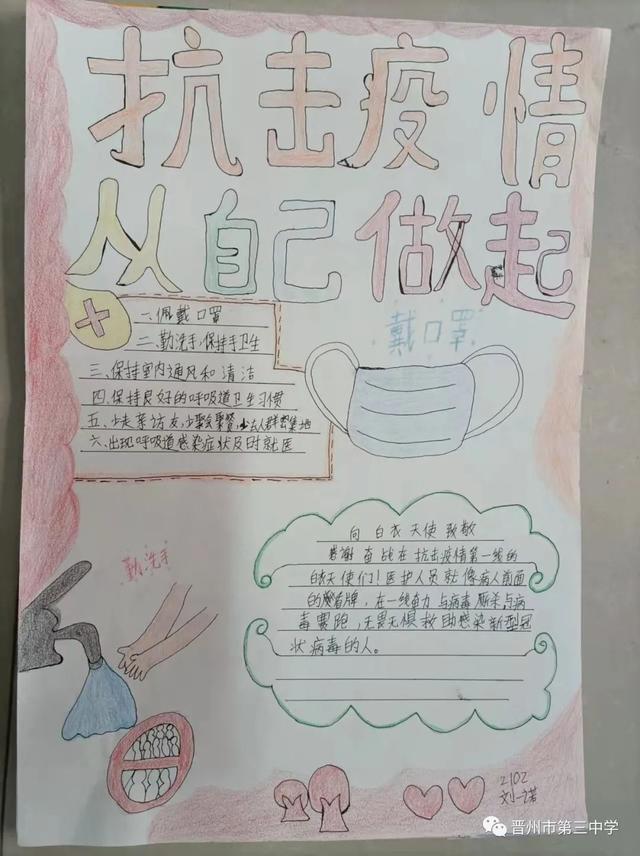 抗击疫情
从自己做起
戴口罩
一、佩戴口罩
二、勤洗手,保持手卫生
三、保持室内通风和清洁
四、保持良好的呼吸道卫生习惯
五、少走亲访友,少聚会聚餐,少去人群密集地
六、出现呼吸道感染症状及时就医
向白衣天使致敬
感谢奋战在抗击疫情第一线的
白衣天使们!医护人员就像病人前面
的盾牌,在一线奋力与病毒厮杀与病
毒赛跑,无畏无惧救助感染新型冠
状病毒的人。
勤洗手
2102
刘一诺
晋州市第三中学